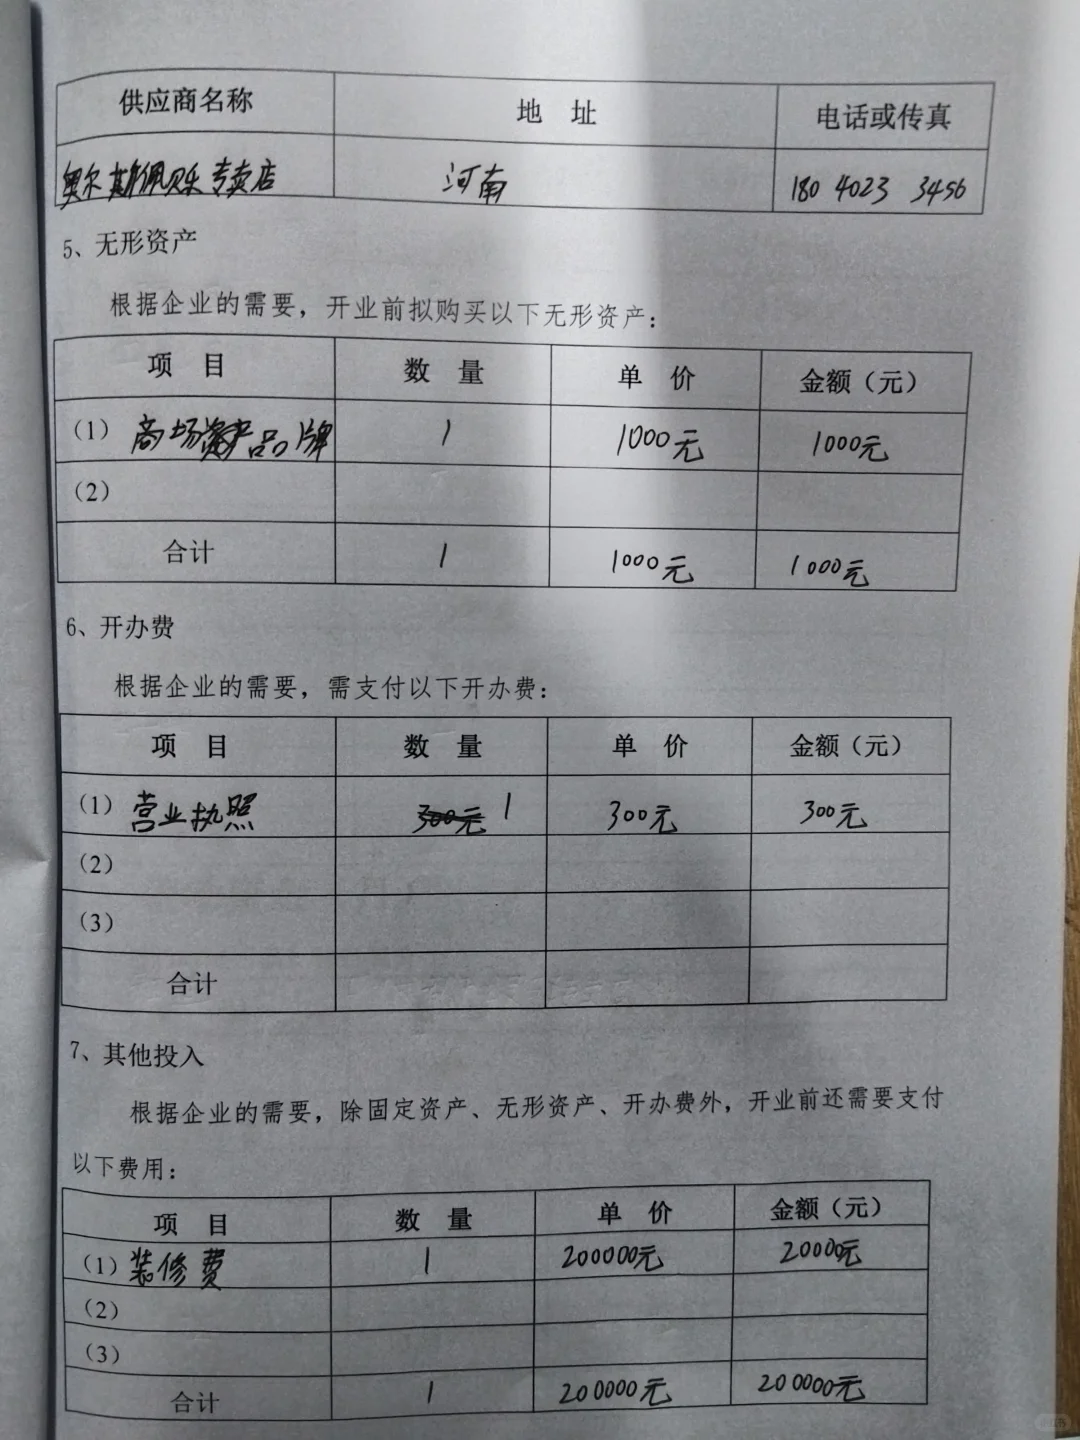 供应商名称 地 址 电话或传真
奥尔斯佩贝乐专卖店 河南 180 4023 3456
5、无形资产
根据企业的需要，开业前拟购买以下无形资产：
项 目 数 量 单 价 金额（元）
（1）商场资产品牌 1 1000元 1000元
（2）
合计 1 1000元 1000元
6、开办费
根据企业的需要，需支付以下开办费：
项 目 数 量 单 价 金额（元）
（1）营业执照 300元 1 300元 300元
（2）
（3）
合计
7、其他投入
根据企业的需要，除固定资产、无形资产、开办费外，开业前还需要支付
以下费用：
项 目 数 量 单 价 金额（元）
（1）装修费 1 200000元 20000元
（2）
（3）
合计 1 200000元 200000元